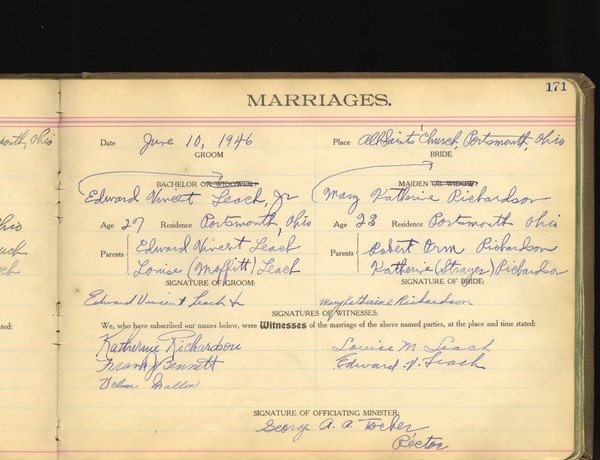 171
MARRIAGES.
Date June 10, 1946 Place All Saints' Church, Portsmouth, Ohio
GROOM BRIDE
BACHELOR OR WIDOWER: MAIDEN OR WIDOW:
Edward Vincent Leach, Jr Mary Katherine Richardson
Age 27 Residence Portsmouth, Ohio Age 23 Residence Portsmouth Ohio
Parents Edward Vincent Leach Parents Robert Orm Richardson
Louise (Moffitt) Leach Katherine (Strayer) Richardson
SIGNATURE OF GROOM: SIGNATURE OF BRIDE:
Edward Vincent Leach Jr Mary Katherine Richardson
SIGNATURES OF WITNESSES:
We, who have subscribed our names below, were Witnesses of the marriage of the above named parties, at the place and time stated:
Katherine Richardson Louise M Leach
Frank J Bennett Edward V. Leach
SIGNATURE OF OFFICIATING MINISTER:
George A. A. Tocher
Rector